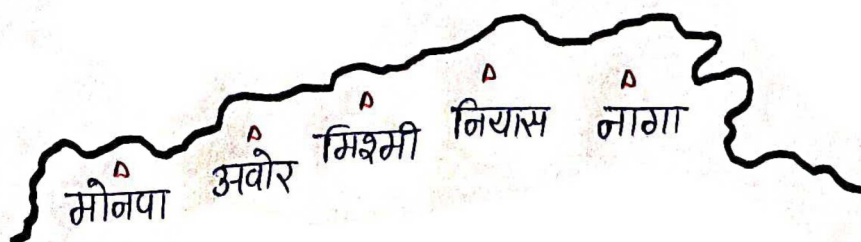 मोनपा अवोर मिश्मी नियास नागा